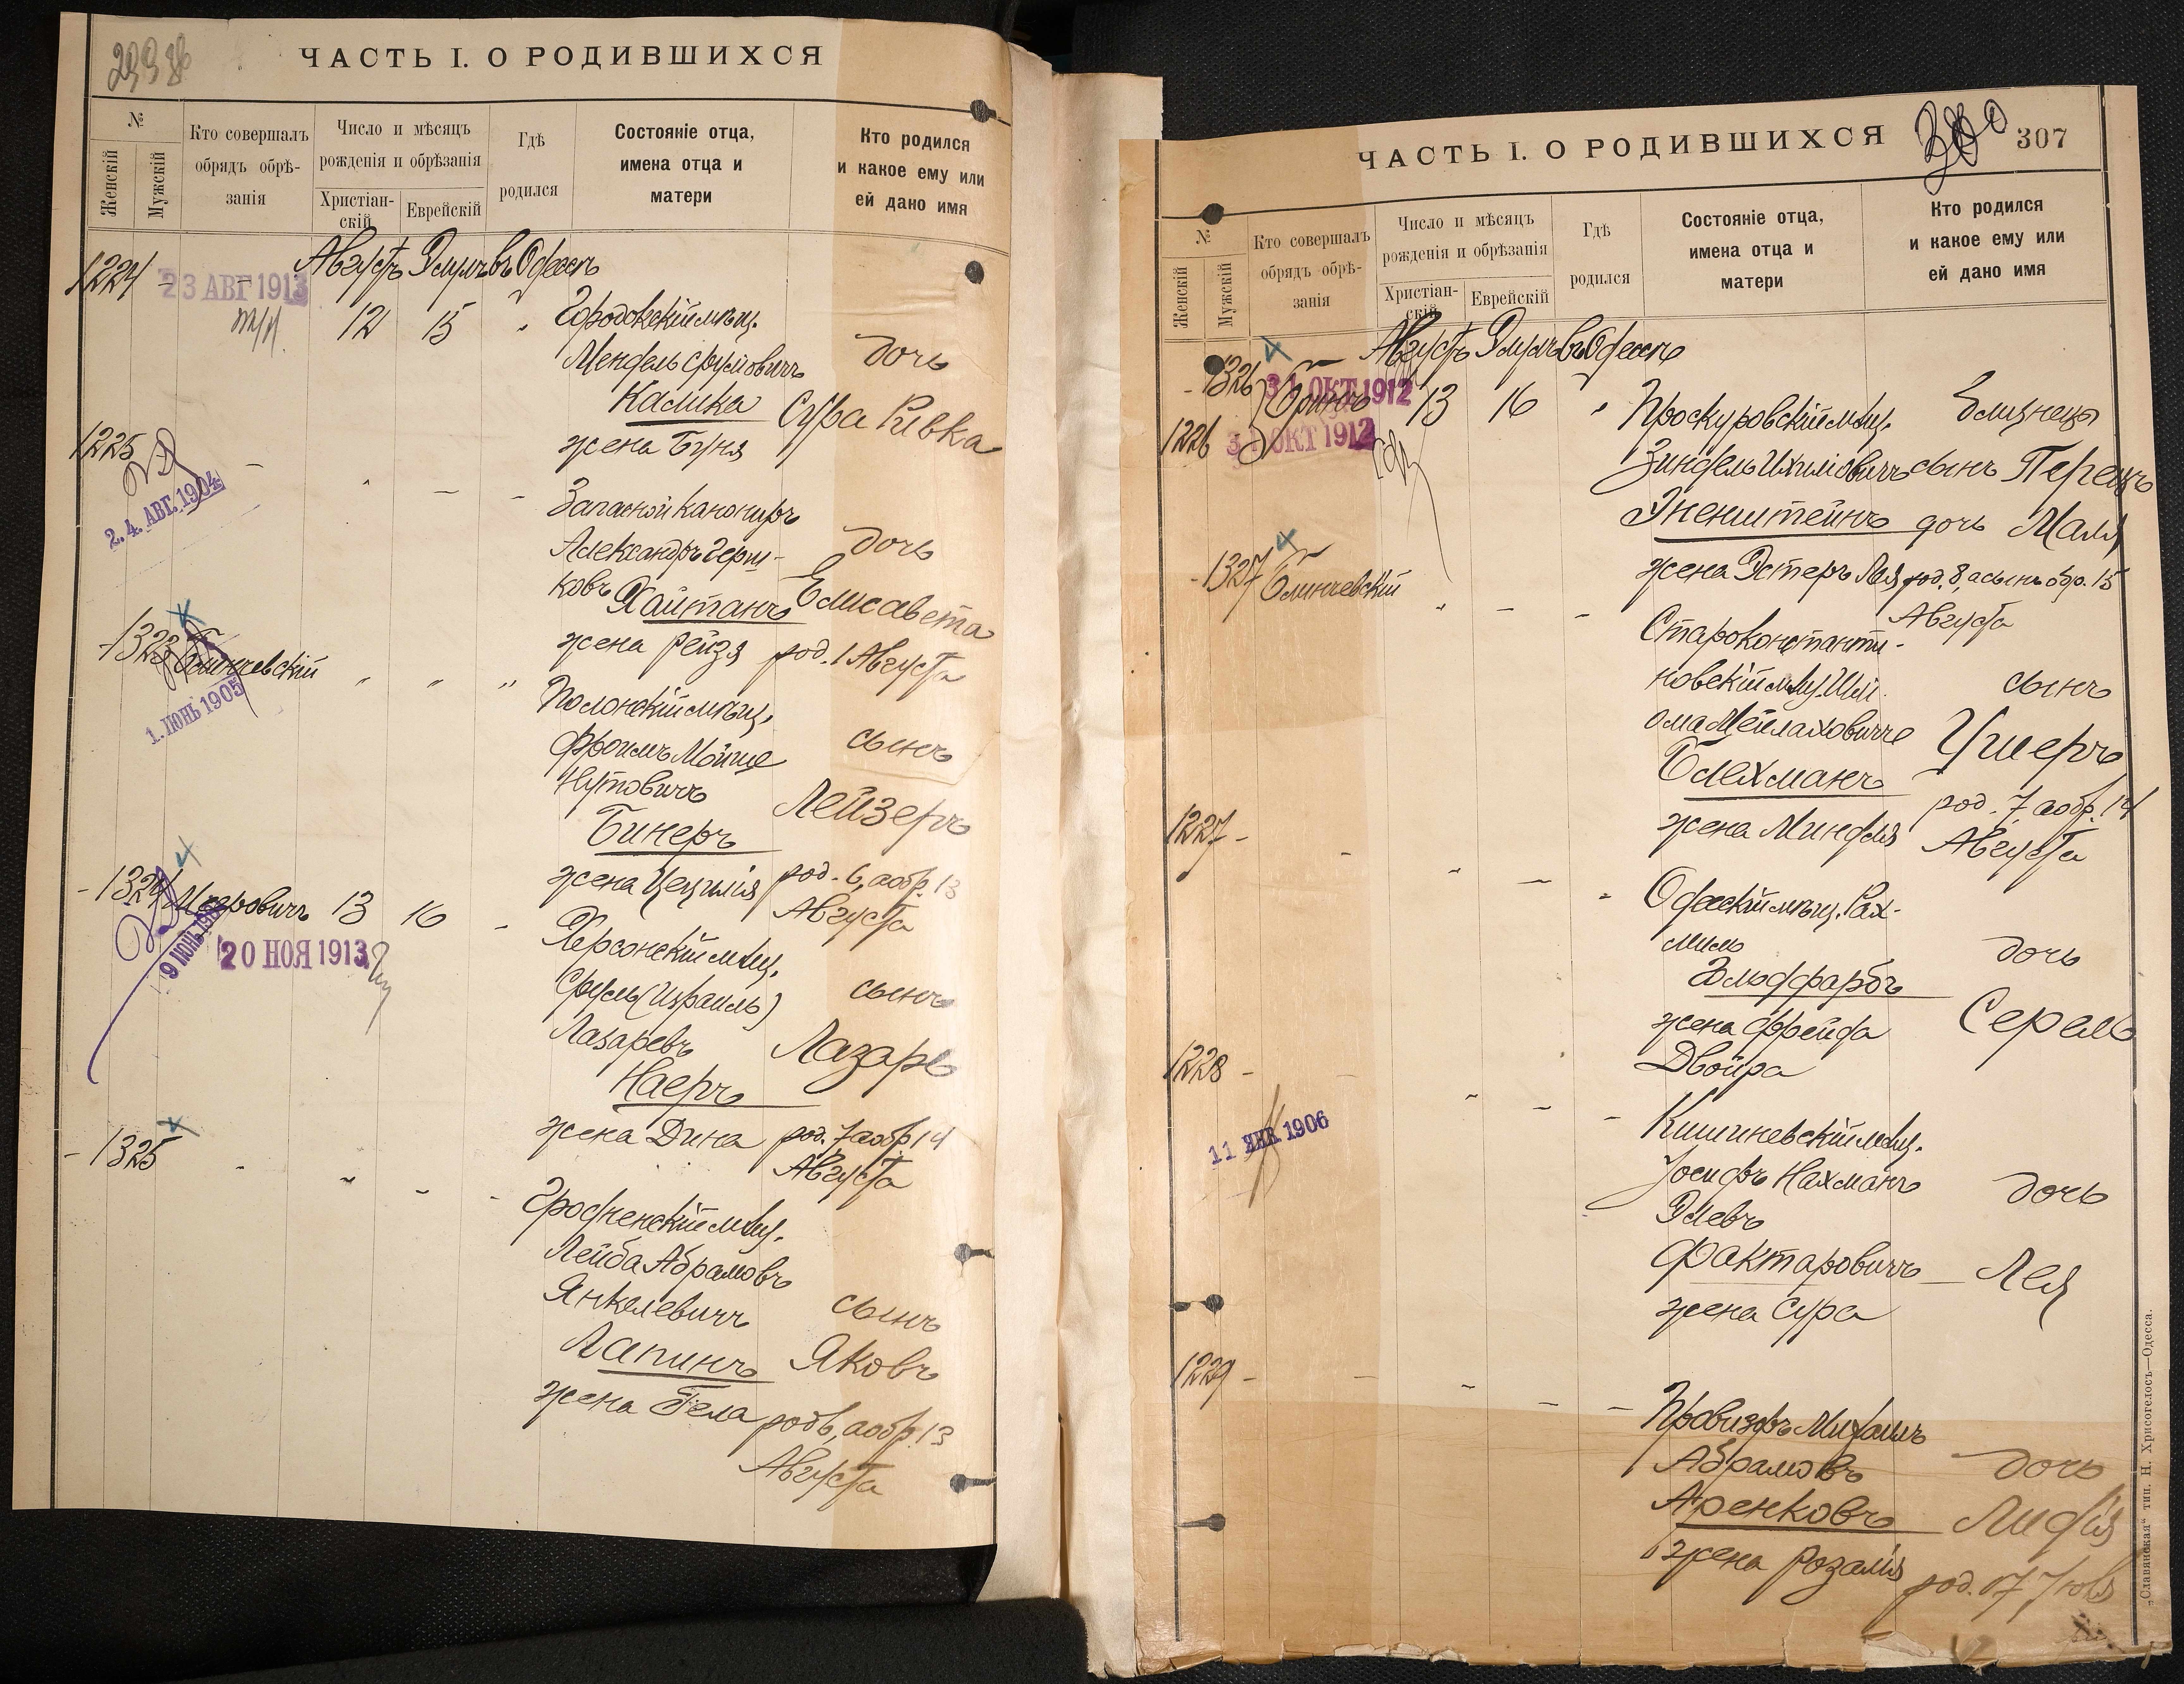 ЧАСТЬ I. О РОДИВШИХСЯ
№
Женскій
Мужскій
Кто совершалъ
обрядъ обрѣ-
занія
Число и мѣсяцъ
рожденія и обрѣзанія
Христіан-
скій
Еврейскій
Гдѣ
родился
Состояніе отца,
имена отца и
матери
Кто родился
и какое ему или
ей дано имя
Августъ Элулъ въ Одессѣ
1224 -
23 АВГ 1913
12 15 "
Городокскій мѣщ.
Мендель Сруловичъ дочь
Калика Сура Ривка
жена Буня
1225 -
2.4. АВГ. 1904
Запасной канониръ
Александръ Герш- дочь
ковъ Хайтанъ Елисавета
жена Рейзя род. 1 Августа
-1323
1. ІЮНЬ 1905
" " "
Полонскій мѣщ.
Фроимъ Мойше сынъ
Нутовичъ Лейзеръ
Бинеръ
жена Цецилія род. 6, а обр. 13
Августа
-1324 13 16 -
20 НОЯ 1913
Херсонскій мѣщ.
Сруль (Израиль) сынъ
Лазаревъ Лазарь
Наеръ
жена Дина род. 7 а обр. 14
Августа
-1325
Гродненскій мѣщ.
Лейба Абрамовъ
Янкелевичъ сынъ
Лапинъ Яковъ
жена Бела род 6, а обр. 13
Августа
ЧАСТЬ I. О РОДИВШИХСЯ
307
№
Женскій
Мужскій
Кто совершалъ
обрядъ обрѣ-
занія
Число и мѣсяцъ
рожденія и обрѣзанія
Христіан-
скій
Еврейскій
Гдѣ
родился
Состояніе отца,
имена отца и
матери
Кто родился
и какое ему или
ей дано имя
Августъ Элулъ въ Одессѣ
-1326
31 ОКТ 1912
13 16 "
1226
31 ОКТ 1912
Проскуровскій мѣщ. близнецы
Зиндель Ихиловичъ сынъ Перецъ
Эненштейнъ дочь Маля
жена Эстеръ Лея род. 8, а сынъ обр. 15
Августа
-1327
Староконстанти-
новскій мѣщ. Шл
ома Мейлаховичъ сынъ
Блехманъ Ушеръ
жена Миндля род. 7, а обр. 14
Августа
1227 -
Одесскій мѣщ. Рах-
миль дочь
Эльффарбъ
жена Фрейда Серель
Двойра
1228 -
11 ЯНВ. 1906
Кишиневскій мѣщ.
Іосифъ Нахманъ дочь
Элевъ
Фактаровичъ Лея
жена Сура
1229 -
Провизоръ Михаилъ
Абрамовъ дочь
Аренковъ Лидія
жена Розалія род. 17 Іюля
„Славянская“ тип. Н. Хрисогелосъ—Одесса.